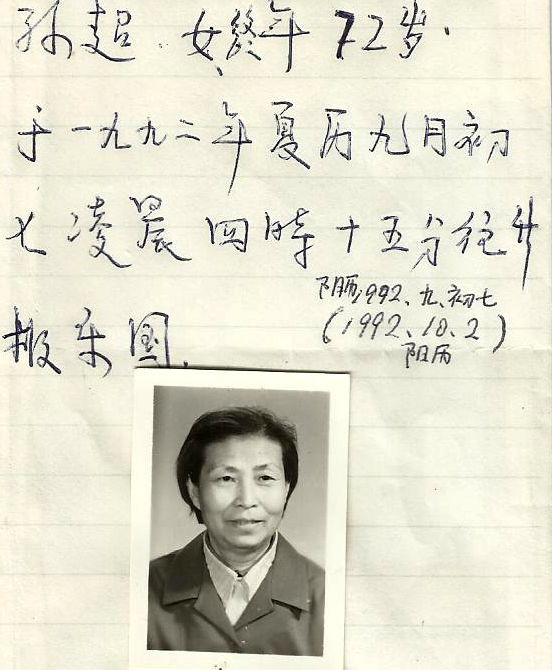 孙超 女终年72岁.
于一九九二年夏历九月初
七凌晨四時十五分往升
极乐国.
阴历1992、九、初七
(1992、10、2)
阳历